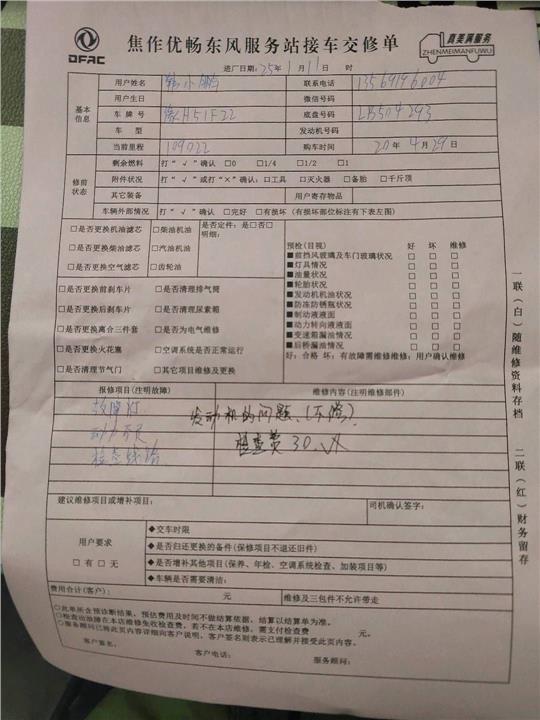 DFAC
焦作优畅东风服务站接车交修单
真美满服务
ZHENMEIMANFUWU
进厂日期：25年1月11日 时
基本信息
用户姓名 韩小鹏 联系电话 13569196004
用户生日 微信号码
车牌号 豫H51F22 底盘号码 LB504293
车型 发动机号码
当前里程 109022 购车时间 20年4月29日
修前状态
剩余燃料 打“√”确认 □0 □1/4 □1/2 □1
附件状况 打“√”或打“×”确认：□工具 □灭火器 □备胎 □千斤顶
其它装备 用户寄存物品
车辆外部情况 打“√”确认 □完好 □有损坏（有损坏部位标注有下表左图）
□是否更换机油滤芯 □柴油机油 是否定件：是□否□
明细：
□是否更换柴油滤芯 □汽油机油
□是否更换空气滤芯 □齿轮油
□是否更换前刹车片 □是否清理排气筒
□是否更换后刹车片 □是否清理尿素箱
□是否更换离合三件套 □是否为电气维修
□是否更换火花塞 □空调系统是否正常运行
□是否清理节气门 □其它项目维修及更换
预检（目视） 好 坏 维修
■前挡风玻璃及车门玻璃状况 □ □ □
■灯具情况 □ □ □
■油量状况 □ □ □
■轮胎状况 □ □ □
■发动机机油状况 □ □ □
■防冻防锈瓶状况 □ □ □
■制动液液面 □ □ □
■动力转向液液面 □ □ □
■变速箱漏油情况 □ □ □
■后桥漏油情况 □ □ □
好：合格 坏：有故障需维修维修：用户确认维修
报修项目（注明故障） 维修内容（注明维修部件）
故障灯
发动机的问题、（不修）.
动力不足
检查费30.
检查线路
建议维修项目或增补项目： 司机确认签字：
用户要求
□有 □无
◆交车时限
◆是否归还更换的备件（保修项目不退还旧件）
◆是否增补其他项目（保养、年检、空调系统检查、加装项目等）
◆车辆是否需要清洁：
费用合计（客户）： 元 维修及三包件不允许带走
○此单所含预诊断结果、预估费用及时间不做结算依据，结算以结算单为准。
○检查出故障在本店维修免收检查费，若不在本店维修，需支付检查费 元。
○服务顾问已将此页内容详细向客户说明，客户签名则表示已理解并接受此页内容。
客户签名： 客户电话： 服务顾问：
一联（白）随维修资料存档
二联（红）财务留存